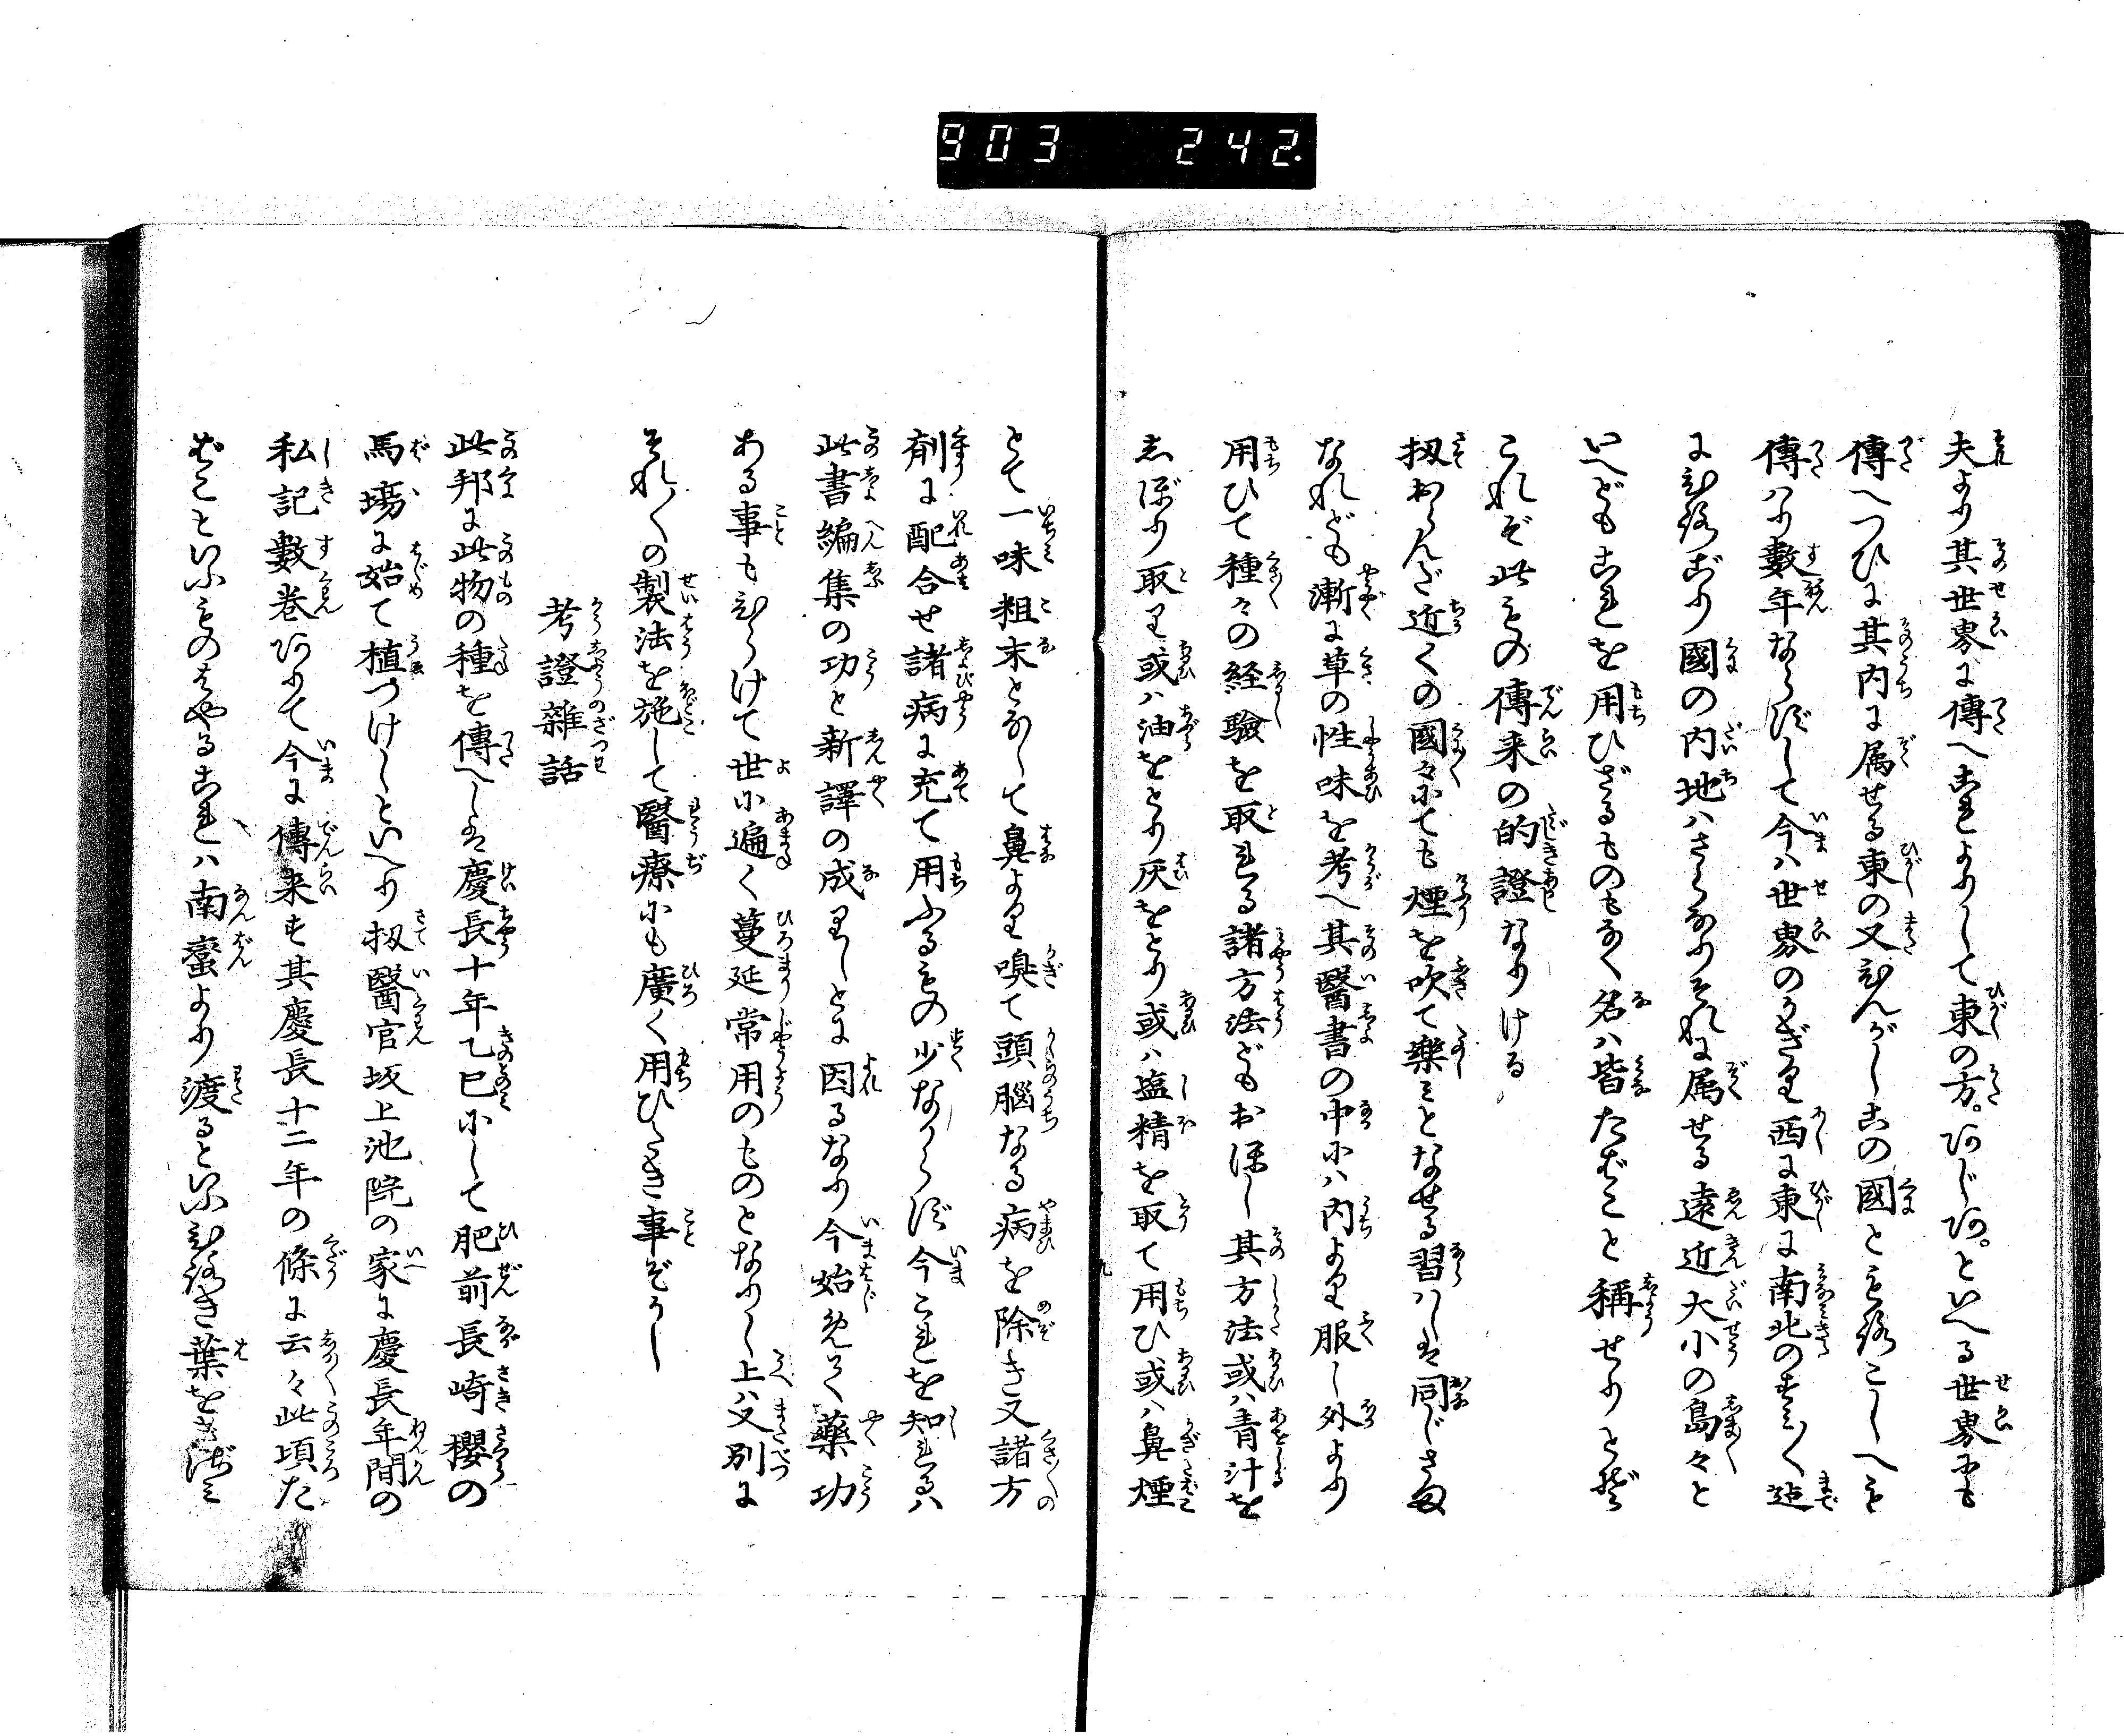 903 242
夫より其世界に傳へこれよりして東の方。アジア。といへる世界にも
傳へつひに其内に属せる東の又ひんがしこの國ともろこしへも
傳はり數年ならずして今は世界のかぎり西に東に南北のすみ〳〵迄
にひろごり國の内地はさらなりそれに属せる遠近大小の島々と
いへどもこれを用ひざるものもなく名は皆たばこと稱せりとぞ
これぞ此もの傳来の的證なりける
扨おらんだ近くの國々にても煙を吹て樂みとなせる習はしは同じさま
なれども漸に草の性味を考へ其醫書の中には内より服し外より
用ひて種々の経驗を取れる諸方法どもおほし其方法或は青汁を
しぼり取り或は油をとり灰をとり或は塩精を取て用ひ或は鼻煙
とて一味粗末となして鼻より嗅て頭腦なる病を除き又諸方
剤に配合せ諸病に充て用ふるもの少ならず今これを知れるは
此書編集の功と新譯の成れしとに因るなり今始めて藥功
ある事もひらけて世に遍く蔓延常用のものとなりし上は又別に
それ〳〵の製法を施して醫療にも廣く用ひたき事ぞかし
考證雜話
此邦に此物の種を傳へしは慶長十年乙巳にして肥前長崎櫻の
馬塲に始て植つけしといへり扨醫官坂上池院の家に慶長年間の
私記數巻ありて今に傳来す其慶長十二年の條に云々此頃た
ばこといふものはやるこれは南蠻より渡るといふひろき葉をきざみ